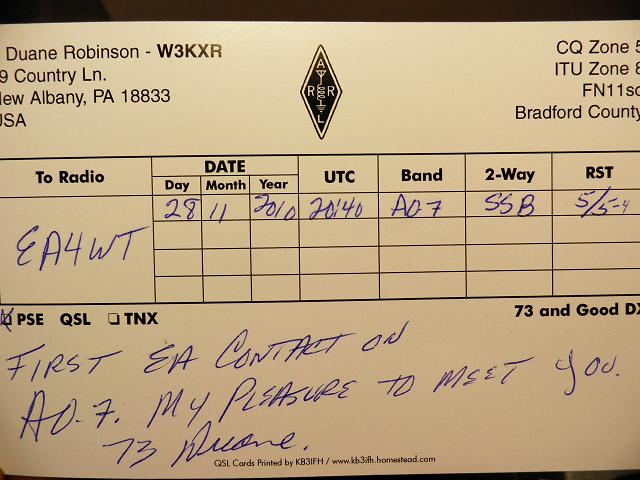 Duane Robinson - W3KXR
9 Country Ln.
New Albany, PA 18833
USA
A
R R
L
CQ Zone 5
ITU Zone 8
FN11sc
Bradford County
To Radio DATE UTC Band 2-Way RST
Day Month Year
28 11 2010 20:40 AO-7 SSB 5/5-4
EA4WT
PSE QSL TNX 73 and Good DX
FIRST EA CONTACT ON
AO-7. MY PLEASURE TO MEET YOU.
73 Duane.
QSL Cards Printed by KB3IFH / www.kb3ifh.homestead.com